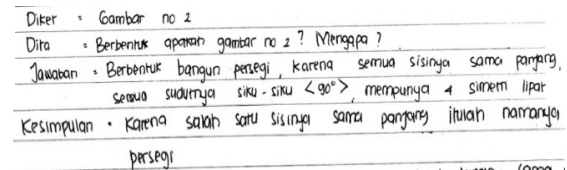 Diker : Gambar no 2
Dita : Berbentuk apakah gambar no 2 ? Mengapa ?
Jawaban : Berbentuk bangun persegi, karena semua sisinya sama panjang,
semua sudutnya siku-siku <90°>, mempunya 4 simetri lipat
Kesimpulan : Karena salah satu sisinya sama panjang itulah namanya
persegi